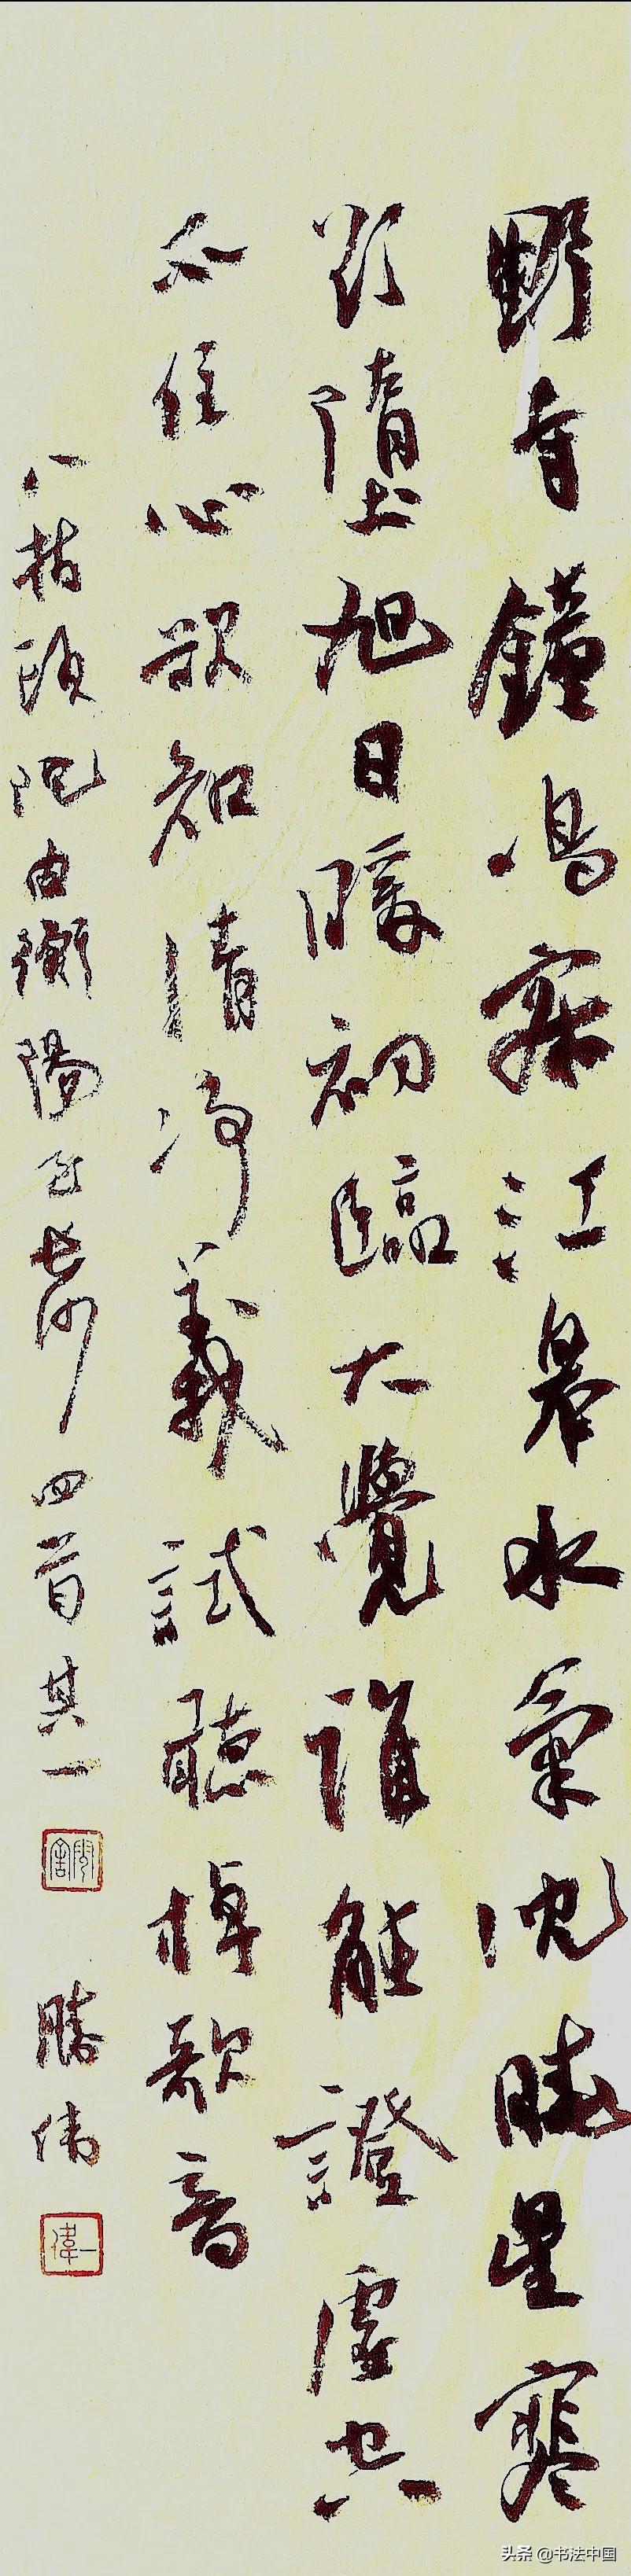 野寺鐘鳴寂江皋水氣沈曉星寒
欲墮旭日暖初臨大覺誰能證虛空
不住心欲知清淨義試聽棹歌音
八指頭陀由衡陽至長沙四首其一
勝偉
頭条 @书法中国